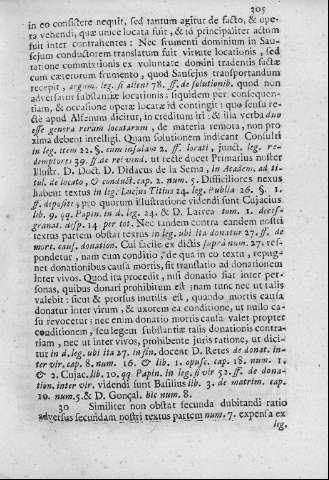 305
in eo consistere nequit, sed tantum agitur de facto, & ope-
ra vehendi, quæ unice locata fuit, & id principaliter actum
fuit inter contrahentes: Nec frumenti dominium in Sau-
sejum conductorem translatum fuit virtute locationis, sed
ratione commixtionis ex voluntate domini tradentis factæ
cum cæterorum frumento, quod Sausejus transportandum
recepit, argum. leg. si alteri 78. ff. de solutionib. quod non
adversatur substantiæ locationis: siquidem per consequen-
tiam, & occasione operæ locatæ id contingit: quo sensu re-
cte apud Alfenum dicitur, in creditum iri: & illa verba duo
esse genera rerum locatarum, de materia remota, non pro
xima debent intelligi. Quam solutionem indicant Consulti
in leg. item 22. §. cum insulam 2. ff. locati, junct. leg. re-
demptores 39. ff de rei vind. ut recte docet Primarius noster
Illustr. D. Doct. D. Didacus de la Serna, in Academ. ad ti-
tul. de locato, & conduct. cap. 2. num. 5. Difficiliores nexus
habent textus in leg. Lucius Titius 24. leg. Publia 26. §. 1.
ff. depositi; pro quorum illustratione videndi sunt Cujacius
lib. 9. qq. Papin. in d. leg. 24. & D. Larrea tom. 1. decis.
granat. desp. 14 per tot. Nec tandem contra eandem nostri
textus partem obstat textus in leg. ubi ita donatur 27. ff. de
mort. caus. donation. Cui facile ex dictis suprà num. 27. res-
pondetur, nam cum conditio, de qua in eo textu, repug-
net donationibus causa mortis, fit translatio ad donationem
inter vivos. Quod ita procedit, nisi donatio fiat inter per-
sonas, quibus donari prohibitum est: nam tunc nec ut talis
valebit: sicut & prorsus inutilis est, quando mortis causa
donatur inter virum, & uxorem ea conditione, ut nullo ca-
su revocetur; nec enim donatio mortis causa valet propter
conditionem, seu legem substantiæ talis donationis contra-
riam, nec ut inter vivos, prohibente juris ratione, ut dici-
tur in d. leg. ubi ita 27. in fin. docent D. Retes de donat. in-
ter vir. cap. 8. num. 16. & lib. 1. opusc. cap. 18. num. 1.
& 2. Cujac. lib. 10. qq. Papin. in leg. si vir 52. ff. de dona-
tion. inter vir. videndi sunt Basilius lib. 3. de matrim. cap.
10. num. 5. & D. Gonçal. hic num. 8.
30 Similiter non obstat secunda dubitandi ratio
adversus secundam nostri textus partem num. 7. expensa ex
leg.